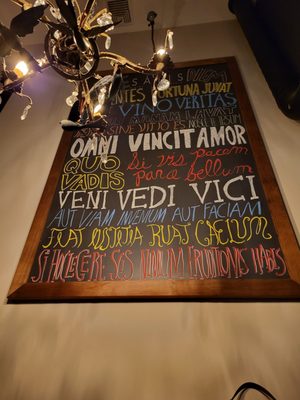 VENTES FORTUNA JUVAT
VINO VERITAS
OMNI VINCIT AMOR
QUO VADIS
Si vis pacem
para bellum
VENI VEDI VICI
AUT VIAM INVENIUM AUT FACIAM
FIAT IUSTITIA RUAT CAELUM
SI HOC LEGERE SCIS NIMIUM ERUDITIONIS HABES